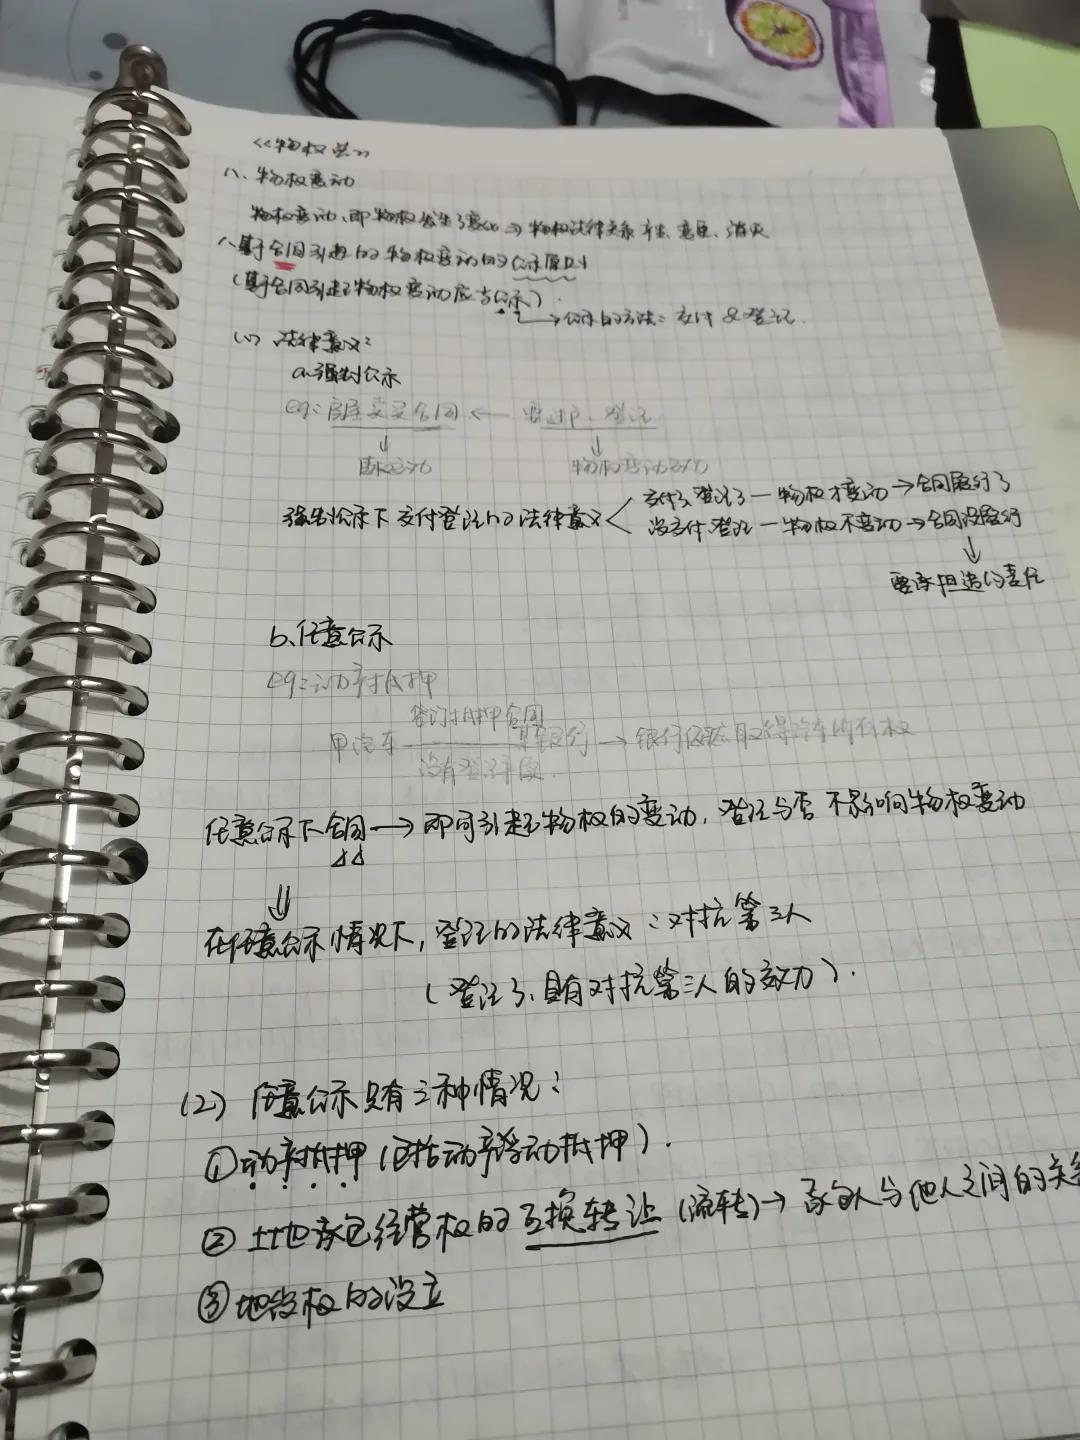 《物权法》
一、物权变动
物权变动,即物权发生了变化→物权法律关系产生、变更、消灭
1、基于合同引起的物权变动的公示原则
(基于合同引起物权变动应当公示).
→公示的方法:交付&登记.
(1) 法律意义:
a.强制公示
eg:房屋买卖合同 ← 要过户、登记
↓ ↓
物权变动
强制公示下交付登记的法律意义 < 交付了登记了—物权才变动→合同履行了
没交付、登记—物权不变动→合同没履行
↓
要承担违约责任
b、任意公示
eg:动产抵押
签订抵押合同
甲汽车 银行 → 银行仍然取得汽车所有权
没有登记
任意公示下合同→即可引起物权的变动,登记与否不影响物权变动
⇓
在任意公示情况下,登记的法律意义:对抗第三人
(登记了、具有对抗第三人的效力).
(2) 任意公示只有三种情况:
①动产抵押(包括动产浮动抵押).
②土地承包经营权的互换转让(流转)→承包人与他人之间的关
③地役权的设立